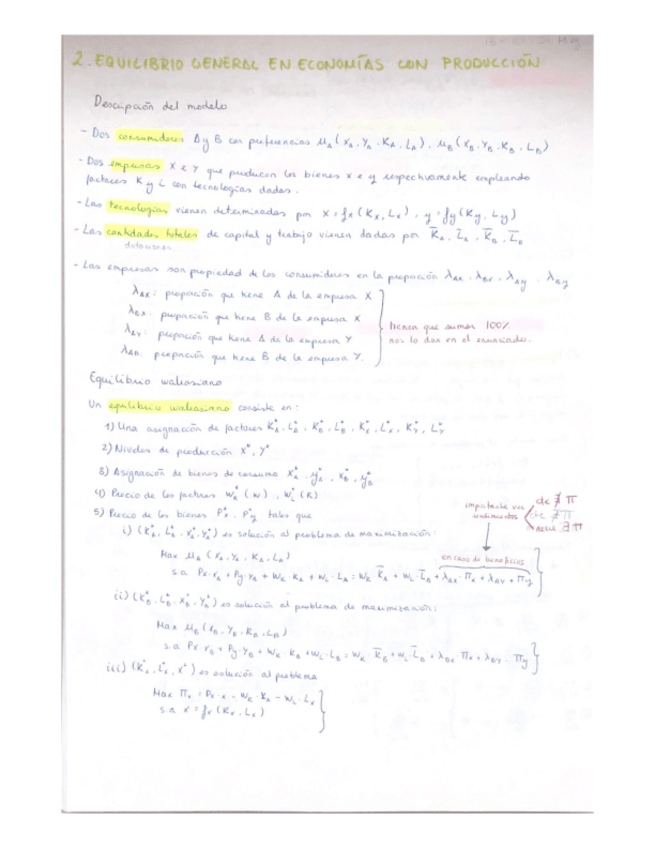 2. EQUILIBRIO GENERAL EN ECONOMÍAS CON PRODUCCIÓN
Descripción del modelo
- Dos consumidores A y B con preferencias μA (XA, YA, KA, LA), μB (XB, YB, KB, LB)
- Dos empresas X e Y que producen los bienes x e y respectivamente empleando
factores K y L con tecnologías dadas.
- Las tecnologías vienen determinadas por x = fx (Kx, Lx), y = fy (Ky, Ly)
- Las cantidades totales de capital y trabajo vienen dadas por K̄A, L̄A, K̄B, L̄B
dotaciones
- Las empresas son propiedad de los consumidores en la proporción λAX, λBX, λAY, λBY
λAX: proporción que tiene A de la empresa X
λBX: proporción que tiene B de la empresa X
λAY: proporción que tiene A de la empresa Y
proporción que tiene B de la empresa Y.
tienen que sumar 100%
nos lo dan en el enunciado.
Equilibrio walrasiano
Un equilibrio walrasiano consiste en:
1) Una asignación de factores K*A, L*A, K*B, L*B, K*X, L*X, K*Y, L*Y
2) Niveles de producción X*, Y*
3) Asignación de bienes de consumo x*A, y*A, x*B, y*B
4) Precio de los factores w*K (w), w*L (R)
5) Precio de los bienes P*x, P*y tales que
importante ver
rendimientos
de ∄ π
cte ∄ π
∃ π
i) (K*A, L*A, x*A, Y*A) es solución al problema de maximización:
Max μA (XA, YA, KA, LA)
en caso de beneficios
s.a Px·xA + Py·yA + WK·KA + WL·LA = WK K̄A + WL·L̄B + λAX·Πx + λAY + Πy
ii) (K*B, L*B, x*B, Y*B) es solución al problema de maximización:
Max μB (xB, YB, KB, LB)
s.a Px·xB + Py·YB + WK·KB + WL·LB = WK K̄B + WL L̄B + λBX Πx + λBY·Πy
iii) (K*x, L*x, x*) es solución al problema
Max Πx = Px·x - WK·Kx - WL·Lx
s.a x = fx (Kx, Lx)